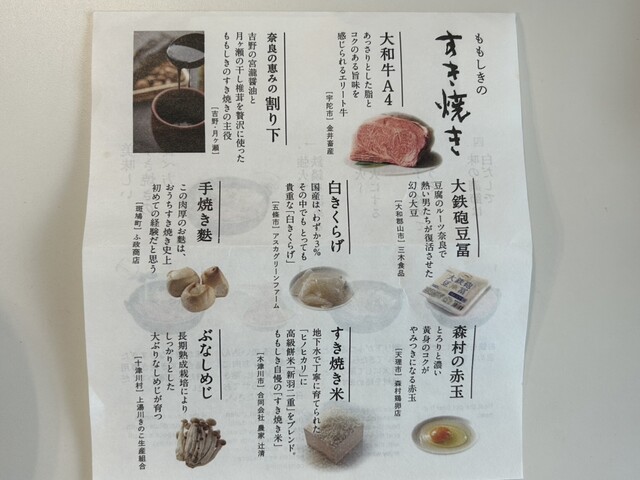 ももしきの
すき焼き
大和牛A4
あっさりとした脂と
コクのある旨味を
感じられるエリート牛
[宇陀市] 金井畜産
奈良の恵みの割り下
吉野の宮滝醤油と
月ヶ瀬の干し椎茸を贅沢に使った
ももしきのすき焼きの主役
[吉野・月ヶ瀬]
大鉄砲豆冨
豆腐のルーツ奈良で
熱い男たちが復活させた
幻の大豆
[大和郡山市] 三木食品
大鉄砲
豆冨
白きくらげ
国産は、わずか3%
その中でも とっても
貴重な「白きくらげ」
[五條市] アスカグリーンファーム
手焼き麩
この肉厚のお麩は、
おうちすき焼き史上
初めての経験だと思う
[斑鳩町] ふ政商店
森村の赤玉
とろりと濃い
黄身のコクが
やみつきになる赤玉
[天理市] 森村鶏卵店
すき焼き米
地下水で丁寧に育てられた
「ヒノヒカリ」に
高級餅米「新羽二重」をブレンド。
ももしき自慢の「すき焼き米」
[木津川市] 合同会社 農家 辻清
ぶなしめじ
長期熟成栽培により
しっかりとした
大ぶりなしめじが育つ
[十津川村] 上湯川きのこ生産組合